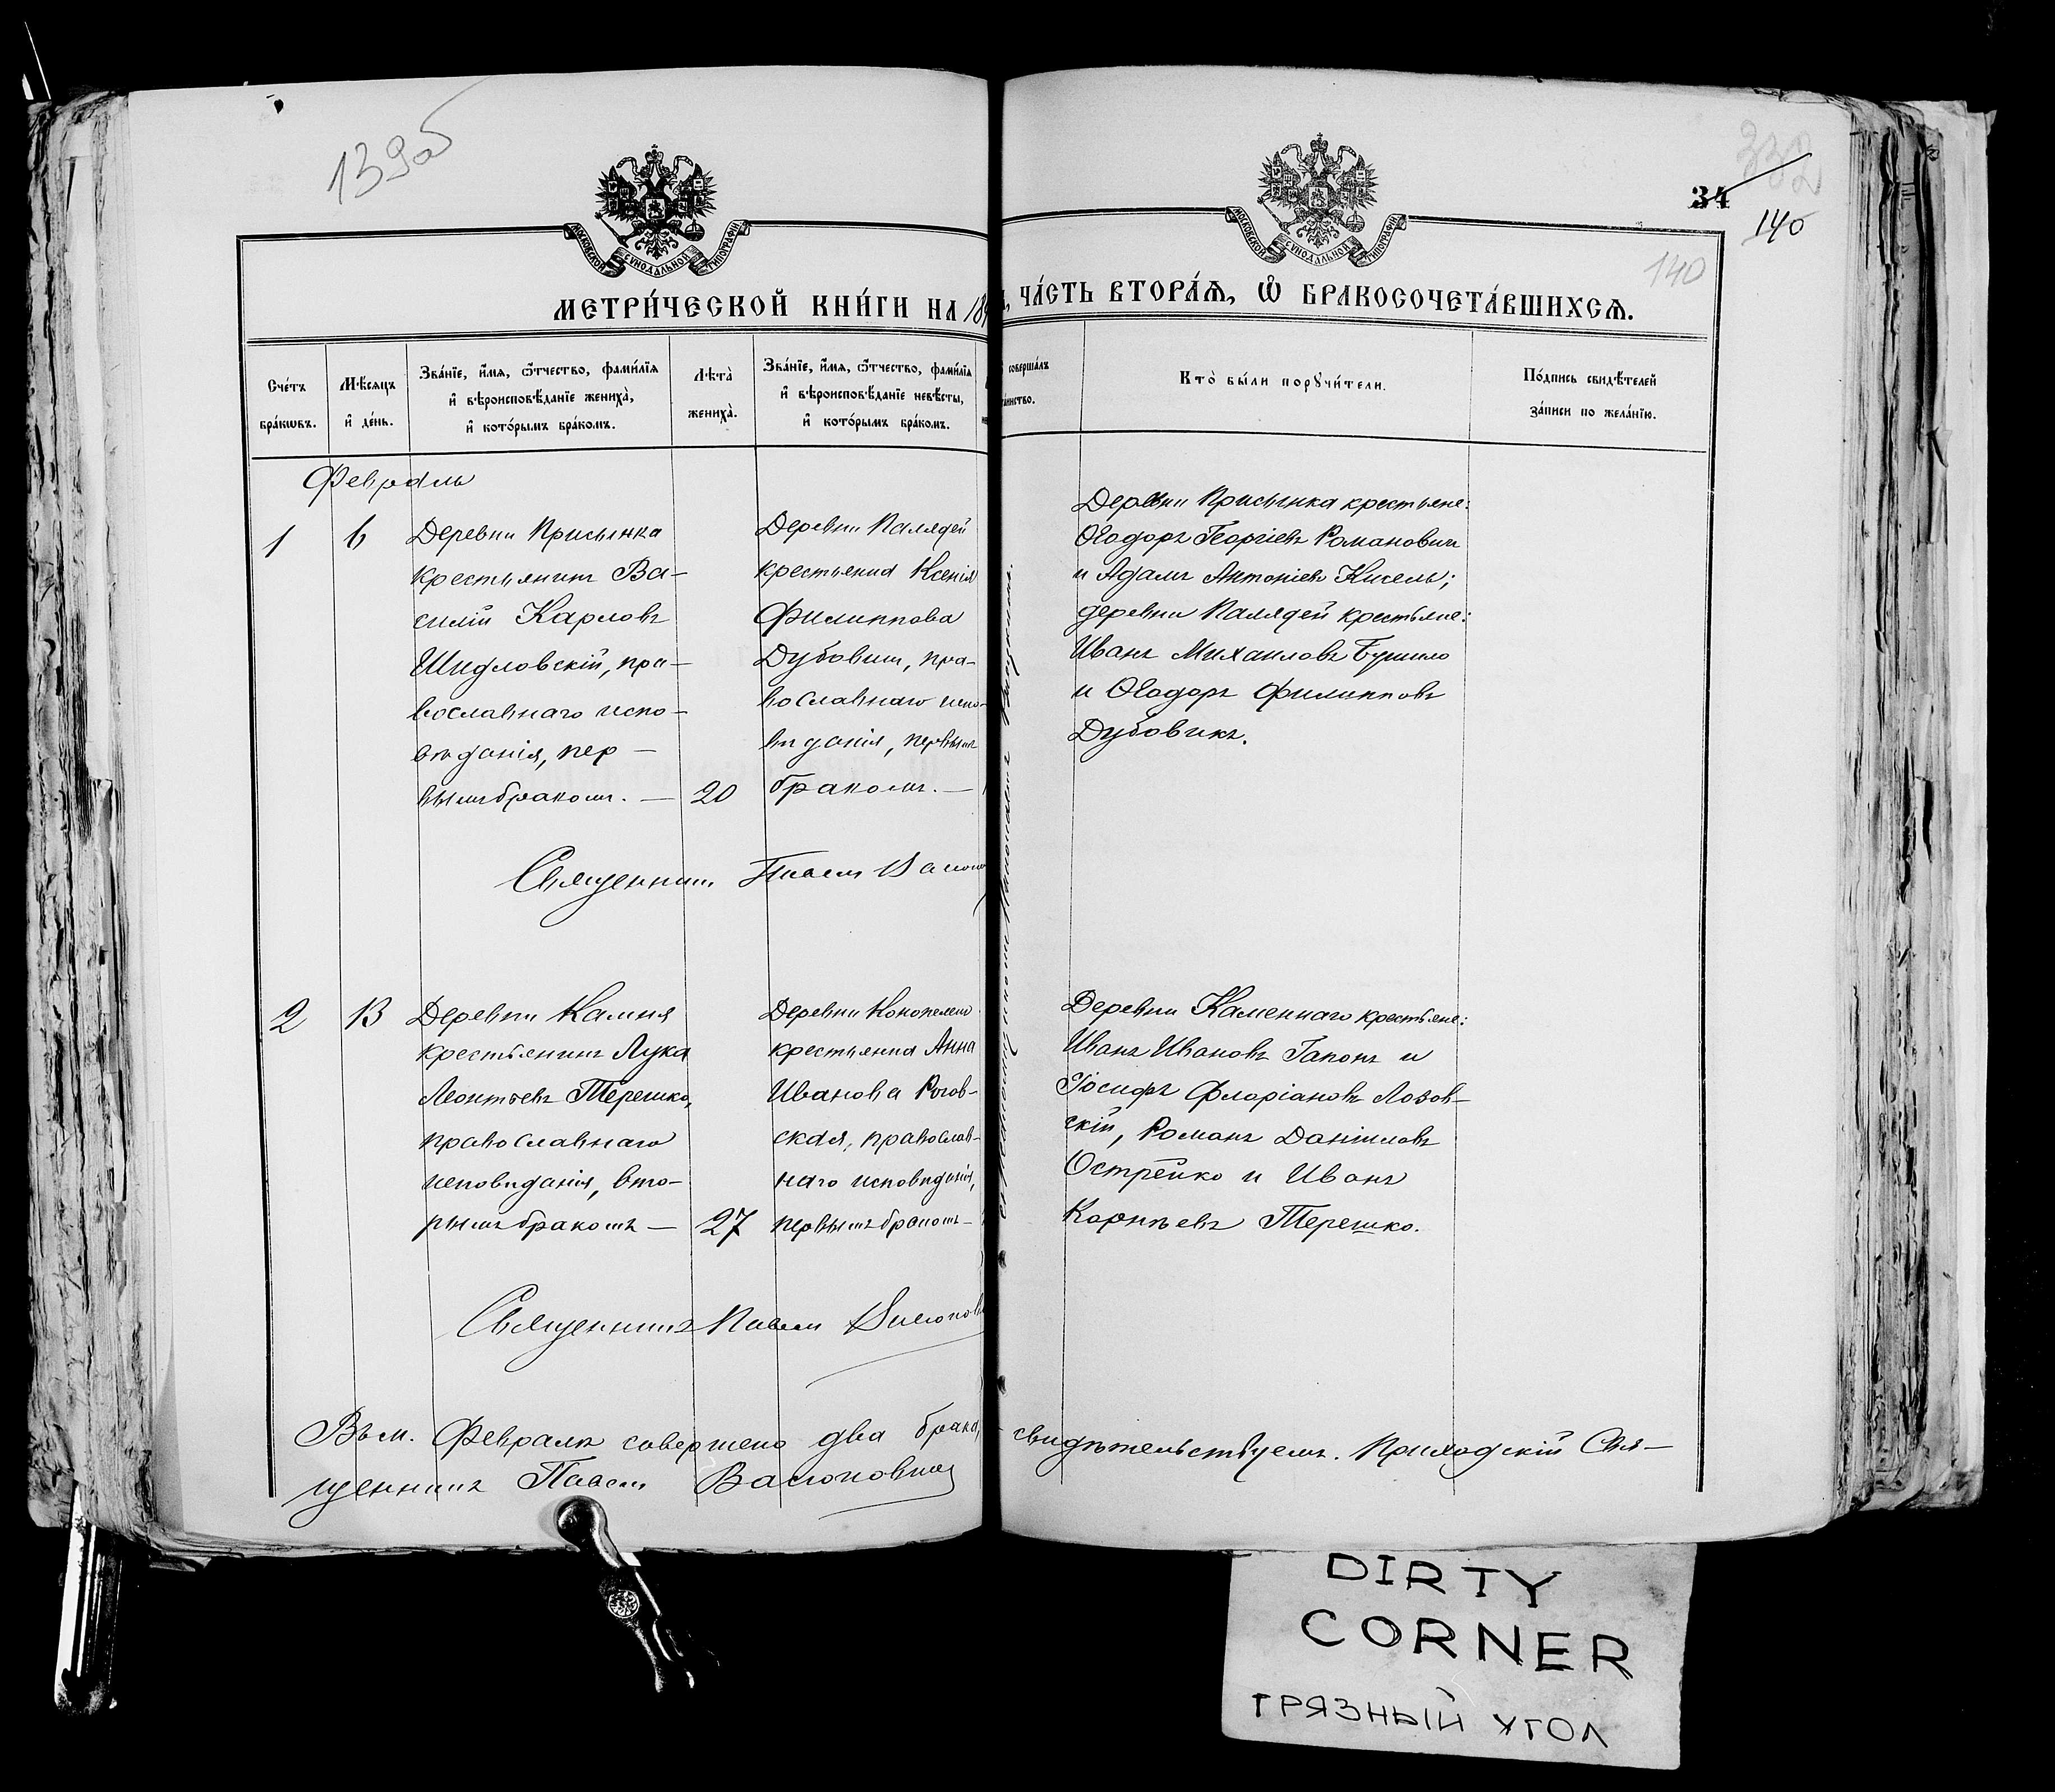 139об
332
34
140
140
МОСКОВСКОЙ СѴНОДАЛЬНОЙ ТИПОГРАФІИ
МОСКОВСКОЙ СѴНОДАЛЬНОЙ ТИПОГРАФІИ
МЕТРИ́ЧЕСКОЙ КНИ́ГИ НА 189
ЧА́СТЬ ВТОРА́Ѧ, Ѽ БРАКОСОЧЕТА́ВШИХСѦ.
Сче́тъ бра́кѡвъ.
Мѣ́сяцъ и҆ де́нь.
Зва́нїе, и҆́мя, ѻ҆́тчество, фами́лїя
и҆ вѣроисповѣ́данїе жениха̀,
и҆ кото́рымъ бра́комъ.
Лѣта̀ жениха̀.
Зва́нїе, и҆́мя, ѻ҆́тчество, фами́лїя
и҆ вѣроисповѣ́данїе невѣ́сты,
и҆ кото́рымъ бра́комъ.
соверша́лъ
та́инство.
Кто̀ бы́ли порꙋчи́тели.
По́дпись свидѣ́телей
за́писи по жела́нїю.
Февраль
1
6
Деревни Присынка
крестьянинъ Ва-
силій Карловъ
Шидловскій, пра-
вославнаго испо-
вѣданія, пер-
вымъ бракомъ. —
20
Деревни Палядей
крестьянка Ксенія
Филиппова
Дубовикъ, пра-
вославнаго испо-
вѣданія, первымъ
бракомъ. —
Деревни Присынка крестьяне:
Ѳеодоръ Георгіевъ Романовичъ
и Адамъ Антоніевъ Кисель;
деревни Палядей крестьяне:
Иванъ Михаиловъ
и Ѳеодоръ Филипповъ
Дубовикъ.
Священникъ Павелъ
2
13
Деревни Камня
крестьянинъ Лука
Леонтьевъ Терешко,
православнаго
исповѣданія, вто-
рымъ бракомъ —
27
Деревни
крестьянка Анна
Иванова Рогов-
ская, православ-
наго исповѣданія,
первымъ бракомъ —
Деревни Каменнаго крестьяне:
Иванъ Ивановъ Гапонъ и
Іосифъ Флоріановъ Лозов-
скій, Романъ Даніиловъ
Острейко и Иванъ
Корнѣевъ Терешко.
Священникъ Павелъ
Въ м. Февралѣ совершено два брака, свидѣтельствуемъ. Приходскій Свя-
щенникъ Павелъ
DIRTY
CORNER
ГРЯЗНЫЙ УГОЛ